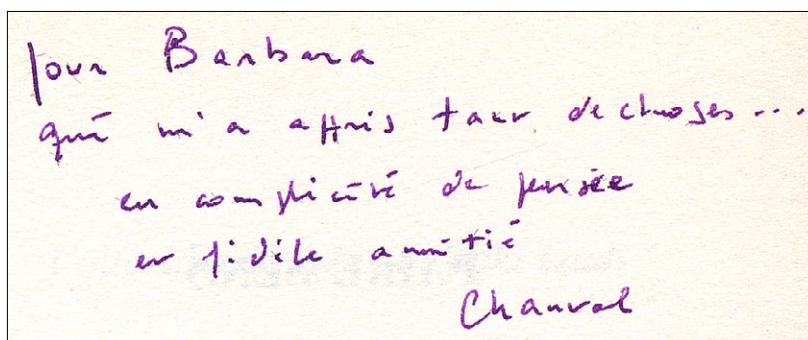 Pour Barbara
qui m'a appris tant de choses...
en complicité de pensée
en fidèle amitié
Chauval